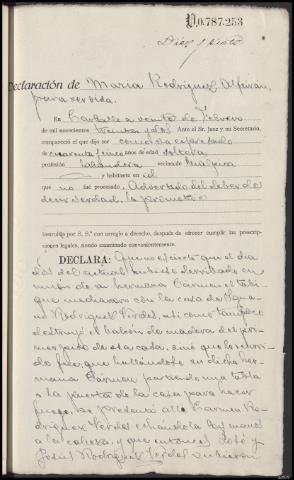 P.0.787.253
Diez y siete
Declaración de María Rodríguez
En Carballo a veinte de Febrero
de mil novecientos treinta y dos. Ante el Sr. Juez y mi Secretaria,
compareció el que dijo ser como se ha expresado
de cuarenta años de edad soltera
profesión labradora vecina de
y habitante en id
que no fué procesado. Advertido del deber de
decir verdad, lo prometió
Instruído por S. Sª con arreglo a derecho, después de ofrecer cumplir las prescrip-
ciones legales, siendo examinado convenientemente.
DECLARA: Que no es cierto que el día
dos del actual hubiese derribado en
unión de su hermana Carmen el tabi-
que medianero con la casa de
Rodríguez Verdes, así como tampoco
destruyó el balcón de madera del
piso de esta casa, sino que lo
fué, que hallándose su dicha her-
mana Carmen partiendo una tabla
a la puerta de la casa para hacer
fuego, se presentó allí Carmen Ro-
dríguez Verdes echándole las manos
a la cabeza, y que entonces José y
Jesús Rodríguez Verdes